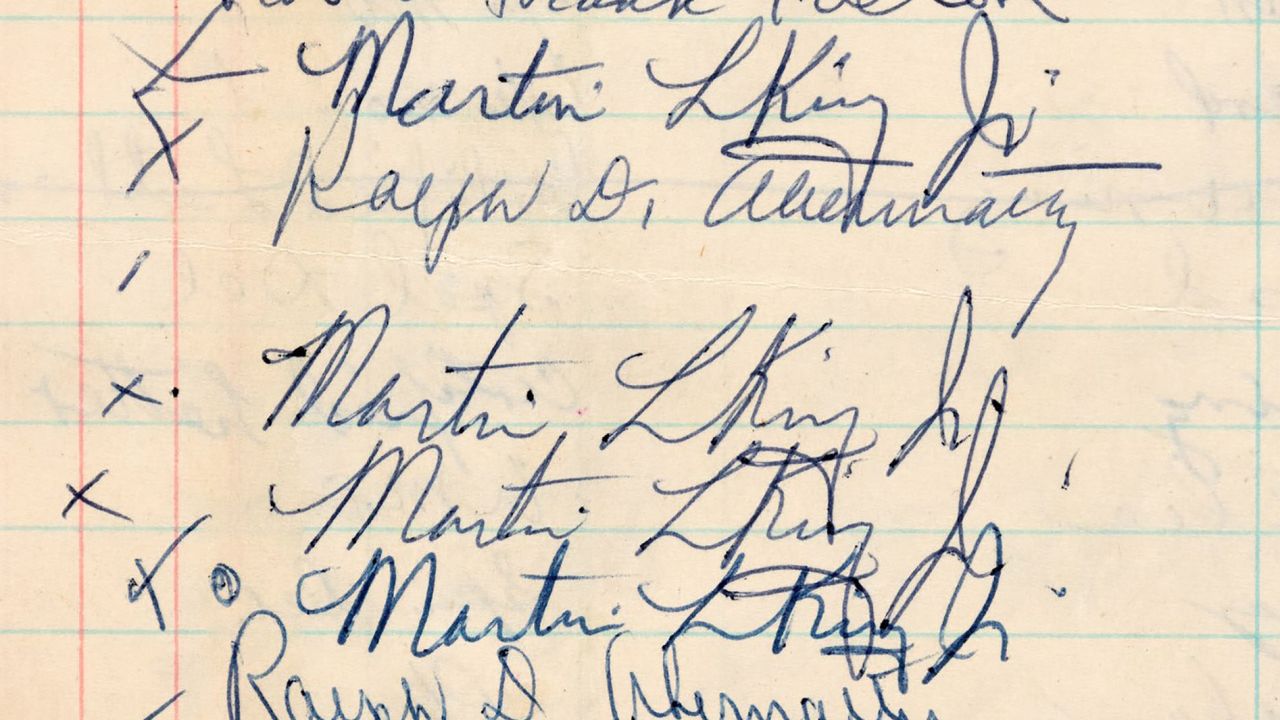 Martin L King Jr
Ralph D. Abernathy
Martin L King Jr
Martin L King Jr
Martin L King Jr
Ralph D Abernathy